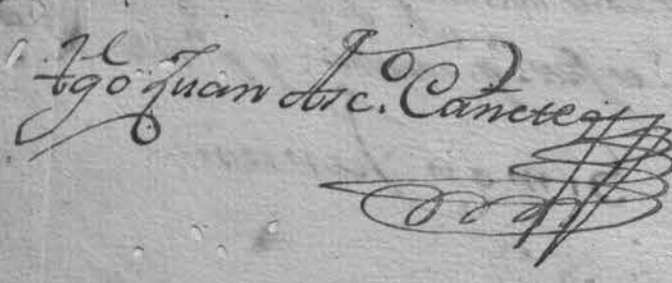 Tgo Juan Asc.o Cañete